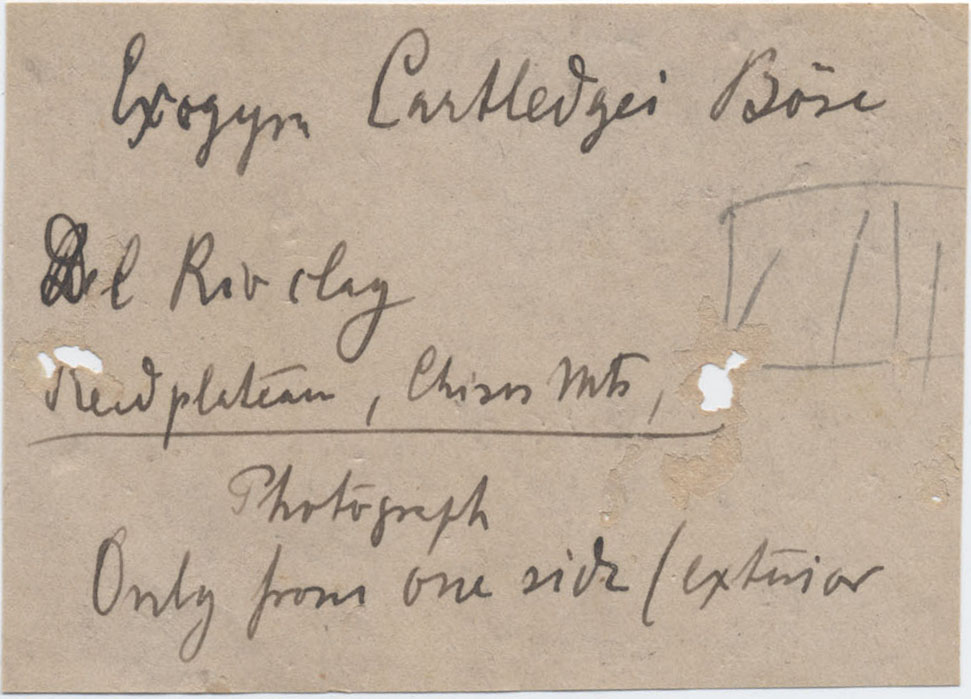 Exogyra Cartledgei Böse
Del Rio clay
Reed plateau, Chisos Mts,
Photograph
Only from one side (exterior